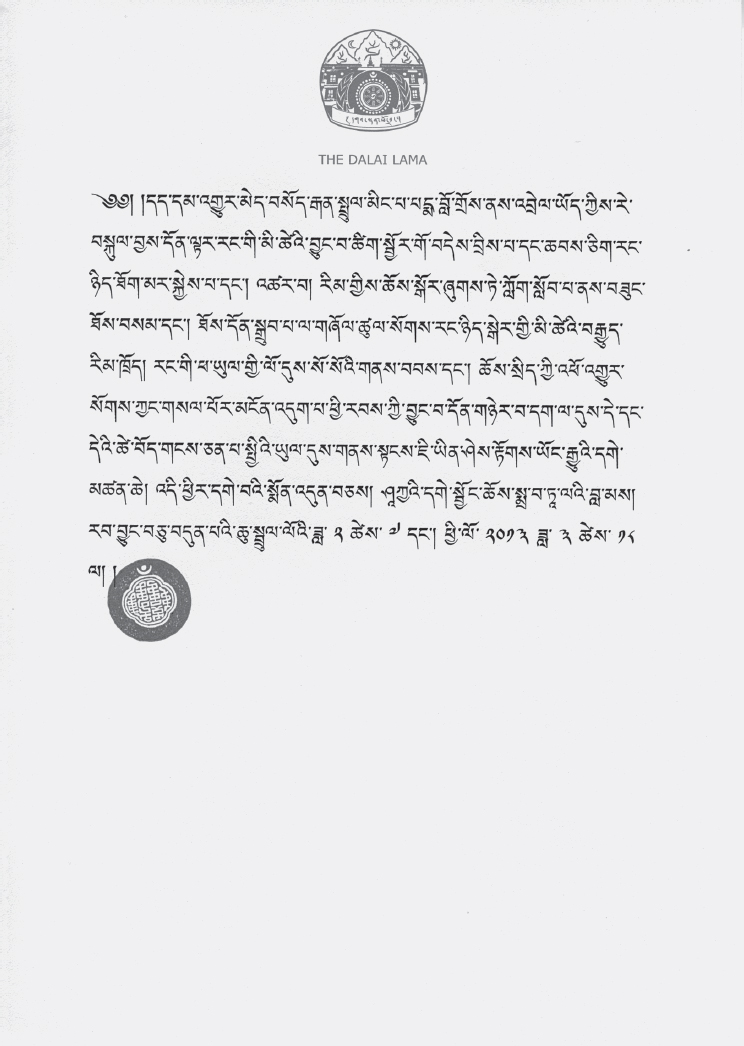 THE DALAI LAMA
༄༅། །དད་དམ་འགྱུར་མེད་བསོད་རྒན་སྤྲུལ་མིང་པ་པདྨ་བློ་གྲོས་ནས་འབྲེལ་ཡོད་ཀྱིས་རེ་
བསྐུལ་བྱས་དོན་ལྟར་རང་གི་མི་ཚེའི་བྱུང་བ་ཚིག་སྦྱོར་གོ་བདེས་བྲིས་པ་དང་ཆབས་ཅིག་རང་
ཉིད་ཐོག་མར་སྐྱེས་པ་དང་། འཚར་བ། རིམ་གྱིས་ཆོས་སྒོར་ཞུགས་ཏེ་ཀློག་སློབ་པ་ནས་བཟུང་
ཐོས་བསམ་དང་། ཐོས་དོན་སྒྲུབ་པ་ལ་གཞོལ་ཚུལ་སོགས་རང་ཉིད་སྒེར་གྱི་མི་ཚེའི་བརྒྱུད་
རིམ་ཁྲོད། རང་གི་ཕ་ཡུལ་གྱི་ལོ་དུས་སོ་སོའི་གནས་བབས་དང་། ཆོས་སྲིད་ཀྱི་འཕོ་འགྱུར་
སོགས་ཀྱང་གསལ་པོར་མངོན་འདུག་པ་ཕྱི་རབས་ཀྱི་བྱུང་བ་དོན་གཉེར་བ་དག་ལ་དུས་དེ་དང་
དེའི་ཚེ་བོད་གངས་ཅན་པ་སྤྱིའི་ཡུལ་དུས་གནས་སྟངས་ཇི་ཡིན་ཤེས་རྟོགས་ཡོང་རྒྱུའི་དགེ་
མཚན་ཆེ། འདི་ཕྱིར་དགེ་བའི་སྨོན་འདུན་བཅས། ཤཱཀྱའི་དགེ་སྦྱོང་ཆོས་སྨྲ་བ་ཏཱ་ལའི་བླ་མས།
རབ་བྱུང་བཅུ་བདུན་པའི་ཆུ་སྦྲུལ་ལོའི་ཟླ་ ༢ ཚེས་ ༧ དང་། ཕྱི་ལོ་ ༢༠༡༣ ཟླ་ ༣ ཚེས་ ༡༨
ལ། །